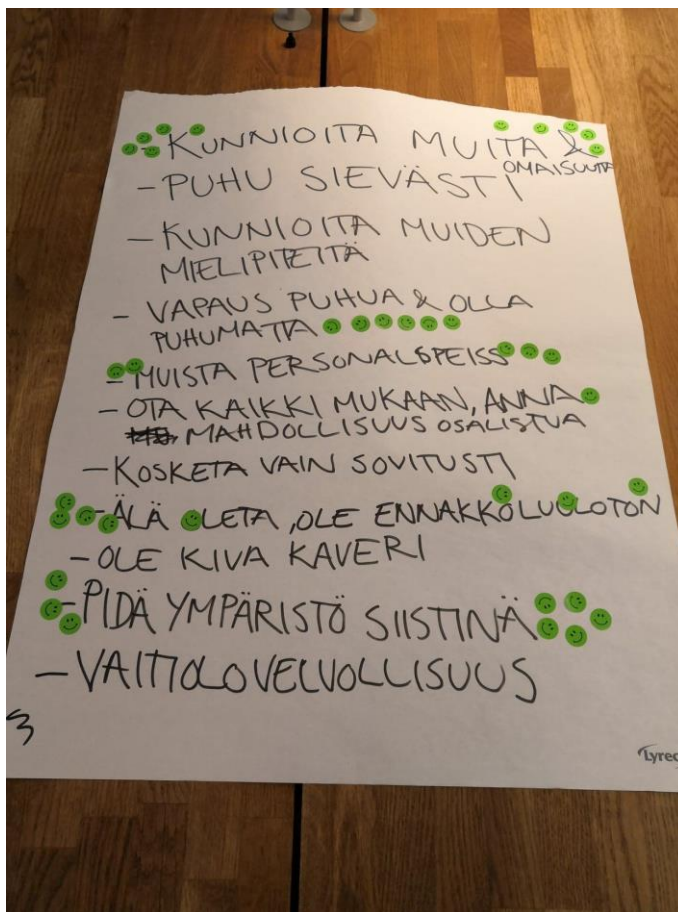 - KUNNIOITA MUITA &
OMAISUUTTA
- PUHU SIEVÄSTI
- KUNNIOITA MUIDEN
MIELIPITEITÄ
- VAPAUS PUHUA & OLLA
PUHUMATTA
- MUISTA PERSONALSPEISS
- OTA KAIKKI MUKAAN, ANNA
MAHDOLLISUUS OSALISTUA
- KOSKETA VAIN SOVITUSTI
- ÄLÄ OLETA, OLE ENNAKKOLUULOTON
- OLE KIVA KAVERI
- PIDÄ YMPÄRISTÖ SIISTINÄ
- VAITIOLOVELVOLLISUUS
3
Lyrec